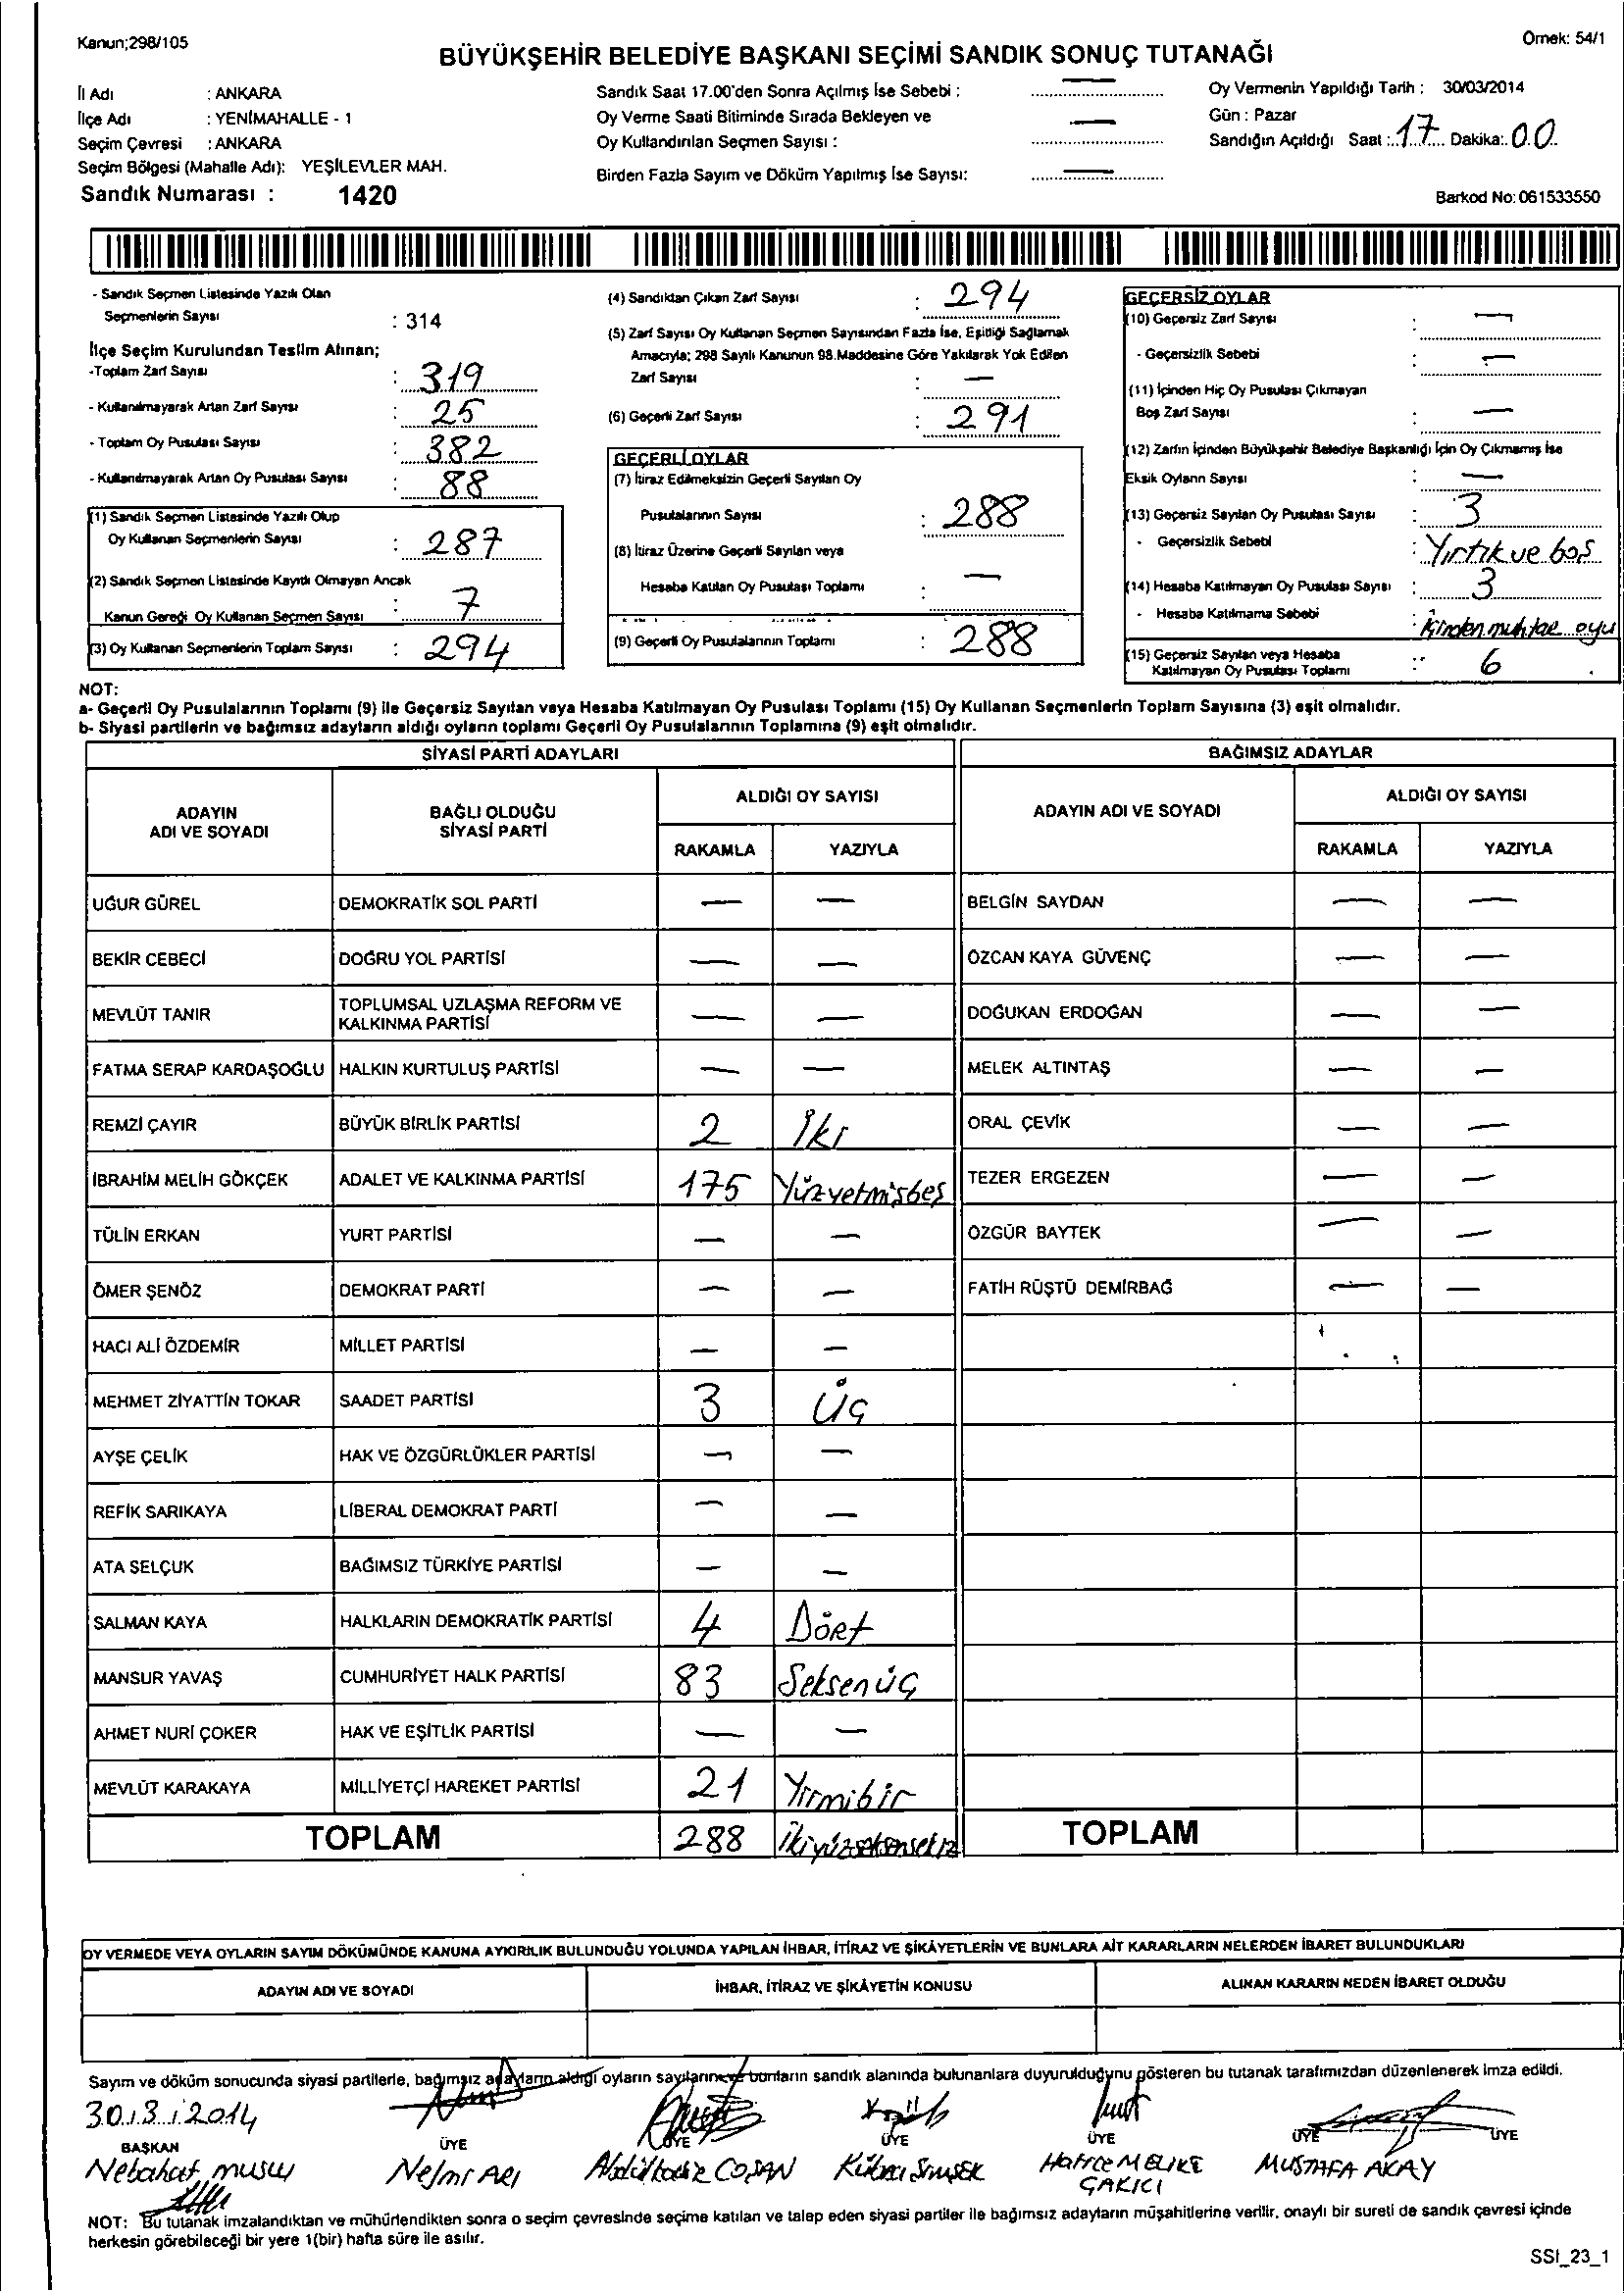 Kanun;298/105
Örnek: 54/1
BÜYÜKŞEHİR BELEDİYE BAŞKANI SEÇİMİ SANDIK SONUÇ TUTANAĞI
İl Adı : ANKARA
İlçe Adı : YENİMAHALLE - 1
Seçim Çevresi : ANKARA
Seçim Bölgesi (Mahalle Adı): YEŞİLEVLER MAH.
Sandık Numarası : 1420
Sandık Saat 17.00'den Sonra Açılmış İse Sebebi : —
Oy Verme Saati Bitiminde Sırada Bekleyen ve
Oy Kullandırılan Seçmen Sayısı : —
Birden Fazla Sayım ve Döküm Yapılmış İse Sayısı: —
Oy Vermenin Yapıldığı Tarih : 30/03/2014
Gün : Pazar
Sandığın Açıldığı Saat : 17 Dakika: 00
Barkod No: 061533550
- Sandık Seçmen Listesinde Yazılı Olan
Seçmenlerin Sayısı : 314
İlçe Seçim Kurulundan Teslim Alınan;
-Toplam Zarf Sayısı : 319
- Kullanılmayarak Artan Zarf Sayısı : 25
- Toplam Oy Pusulası Sayısı : 382
- Kullanılmayarak Artan Oy Pusulası Sayısı : 88
(1) Sandık Seçmen Listesinde Yazılı Olup
Oy Kullanan Seçmenlerin Sayısı : 287
(2) Sandık Seçmen Listesinde Kayıtlı Olmayan Ancak
Kanun Gereği Oy Kullanan Seçmen Sayısı : 7
(3) Oy Kullanan Seçmenlerin Toplam Sayısı : 294
(4) Sandıktan Çıkan Zarf Sayısı : 294
(5) Zarf Sayısı Oy Kullanan Seçmen Sayısından Fazla İse, Eşitliği Sağlamak
Amacıyla; 298 Sayılı Kanunun 98.Maddesine Göre Yakılarak Yok Edilen
Zarf Sayısı : —
(6) Geçerli Zarf Sayısı : 291
GEÇERLİ OYLAR
(7) İtiraz Edilmeksizin Geçerli Sayılan Oy
Pusulalarının Sayısı : 288
(8) İtiraz Üzerine Geçerli Sayılan veya
Hesaba Katılan Oy Pusulası Toplamı : —
(9) Geçerli Oy Pusulalarının Toplamı : 288
GEÇERSİZ OYLAR
(10) Geçersiz Zarf Sayısı : —
- Geçersizlik Sebebi : —
(11) İçinden Hiç Oy Pusulası Çıkmayan
Boş Zarf Sayısı : —
(12) Zarfın İçinden Büyükşehir Belediye Başkanlığı İçin Oy Çıkmamış İse
Eksik Oyların Sayısı : —
(13) Geçersiz Sayılan Oy Pusulası Sayısı : 3
- Geçersizlik Sebebi : Yırtık ve boş
(14) Hesaba Katılmayan Oy Pusulası Sayısı : 3
- Hesaba Katılmama Sebebi : içinden muhtar oyu
(15) Geçersiz Sayılan veya Hesaba
Katılmayan Oy Pusulası Toplamı : 6
NOT:
a- Geçerli Oy Pusulalarının Toplamı (9) ile Geçersiz Sayılan veya Hesaba Katılmayan Oy Pusulası Toplamı (15) Oy Kullanan Seçmenlerin Toplam Sayısına (3) eşit olmalıdır.
b- Siyasi partilerin ve bağımsız adayların aldığı oyların toplamı Geçerli Oy Pusulalarının Toplamına (9) eşit olmalıdır.
SİYASİ PARTİ ADAYLARI
BAĞIMSIZ ADAYLAR
ADAYIN ADI VE SOYADI
BAĞLI OLDUĞU SİYASİ PARTİ
ALDIĞI OY SAYISI
RAKAMLA YAZIYLA
ADAYIN ADI VE SOYADI
ALDIĞI OY SAYISI
RAKAMLA YAZIYLA
UĞUR GÜREL DEMOKRATİK SOL PARTİ — — BELGİN SAYDAN — —
BEKİR CEBECİ DOĞRU YOL PARTİSİ — — ÖZCAN KAYA GÜVENÇ — —
MEVLÜT TANIR TOPLUMSAL UZLAŞMA REFORM VE KALKINMA PARTİSİ — — DOĞUKAN ERDOĞAN — —
FATMA SERAP KARDAŞOĞLU HALKIN KURTULUŞ PARTİSİ — — MELEK ALTINTAŞ — —
REMZİ ÇAYIR BÜYÜK BİRLİK PARTİSİ 2 İki ORAL ÇEVİK — —
İBRAHİM MELİH GÖKÇEK ADALET VE KALKINMA PARTİSİ 175 Yüzyetmişbeş TEZER ERGEZEN — —
TÜLİN ERKAN YURT PARTİSİ — — ÖZGÜR BAYTEK — —
ÖMER ŞENÖZ DEMOKRAT PARTİ — — FATİH RÜŞTÜ DEMİRBAĞ — —
HACI ALİ ÖZDEMİR MİLLET PARTİSİ — —
MEHMET ZİYATTİN TOKAR SAADET PARTİSİ 3 Üç
AYŞE ÇELİK HAK VE ÖZGÜRLÜKLER PARTİSİ — —
REFİK SARIKAYA LİBERAL DEMOKRAT PARTİ — —
ATA SELÇUK BAĞIMSIZ TÜRKİYE PARTİSİ — —
SALMAN KAYA HALKLARIN DEMOKRATİK PARTİSİ 4 Dört
MANSUR YAVAŞ CUMHURİYET HALK PARTİSİ 83 Seksenüç
AHMET NURİ ÇOKER HAK VE EŞİTLİK PARTİSİ — —
MEVLÜT KARAKAYA MİLLİYETÇİ HAREKET PARTİSİ 21 Yirmibir
TOPLAM 288 İkiyüzseksensekiz TOPLAM
OY VERMEDE VEYA OYLARIN SAYIM DÖKÜMÜNDE KANUNA AYKIRILIK BULUNDUĞU YOLUNDA YAPILAN İHBAR, İTİRAZ VE ŞİKÂYETLERİN VE BUNLARA AİT KARARLARIN NELERDEN İBARET BULUNDUKLARI
ADAYIN ADI VE SOYADI İHBAR, İTİRAZ VE ŞİKÂYETİN KONUSU ALINAN KARARIN NEDEN İBARET OLDUĞU
Sayım ve döküm sonucunda siyasi partilerle, bağımsız adayların aldığı oyların sayılarını ve bunların sandık alanında bulunanlara duyurulduğunu gösteren bu tutanak tarafımızdan düzenlenerek imza edildi.
30.3.2014
BAŞKAN ÜYE ÜYE ÜYE ÜYE ÜYE ÜYE
Nebahat muslu Nejmi ARI Abdülkadir COŞAN Kübra ŞİMŞEK Hatice MELİKE MUSTAFA AKAY
ÇAKICI
NOT: Bu tutanak imzalandıktan ve mühürlendikten sonra o seçim çevresinde seçime katılan ve talep eden siyasi partiler ile bağımsız adayların müşahitlerine verilir, onaylı bir sureti de sandık çevresi içinde
herkesin görebileceği bir yere 1(bir) hafta süre ile asılır.
SSI_23_1